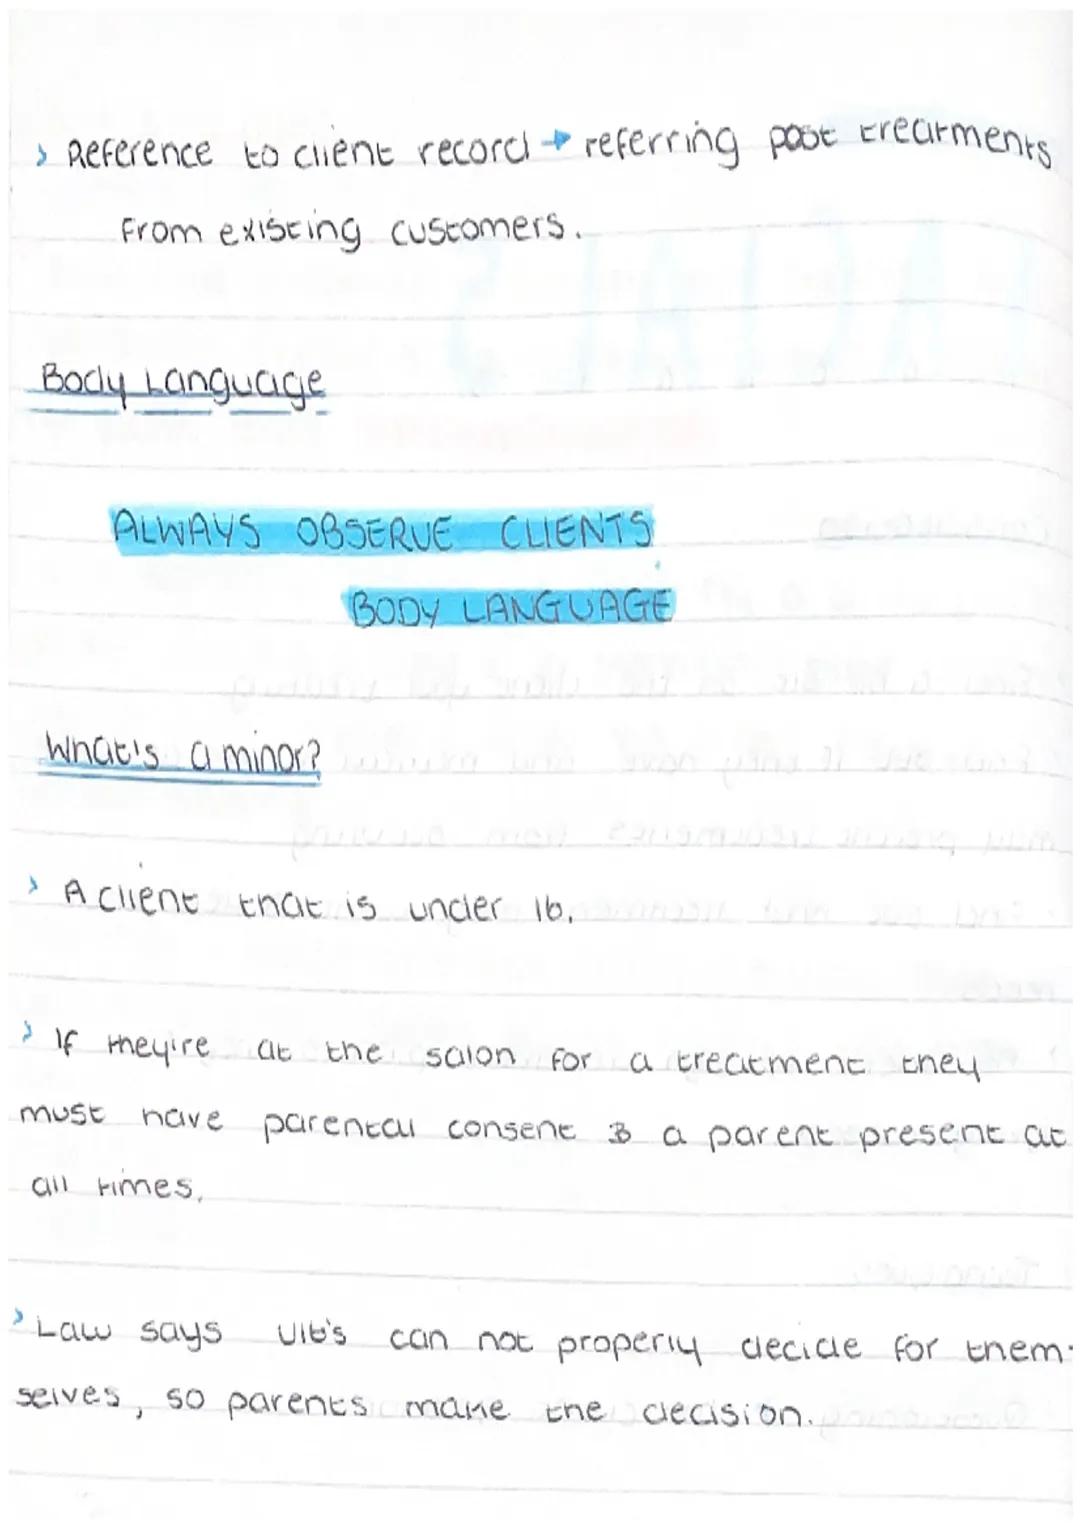 > Reference to client record → referring past treatments
from existing customers.
Body Language
ALWAYS OBSERVE CLIENTS
BODY LANGUAGE
What's a minor?
> A client that is under 16.
> If they're at the salon for a treatment they
must have parental consent & a parent present at
all times.
> Law says U16's can not properly decide for them-
selves, so parents make the decision.